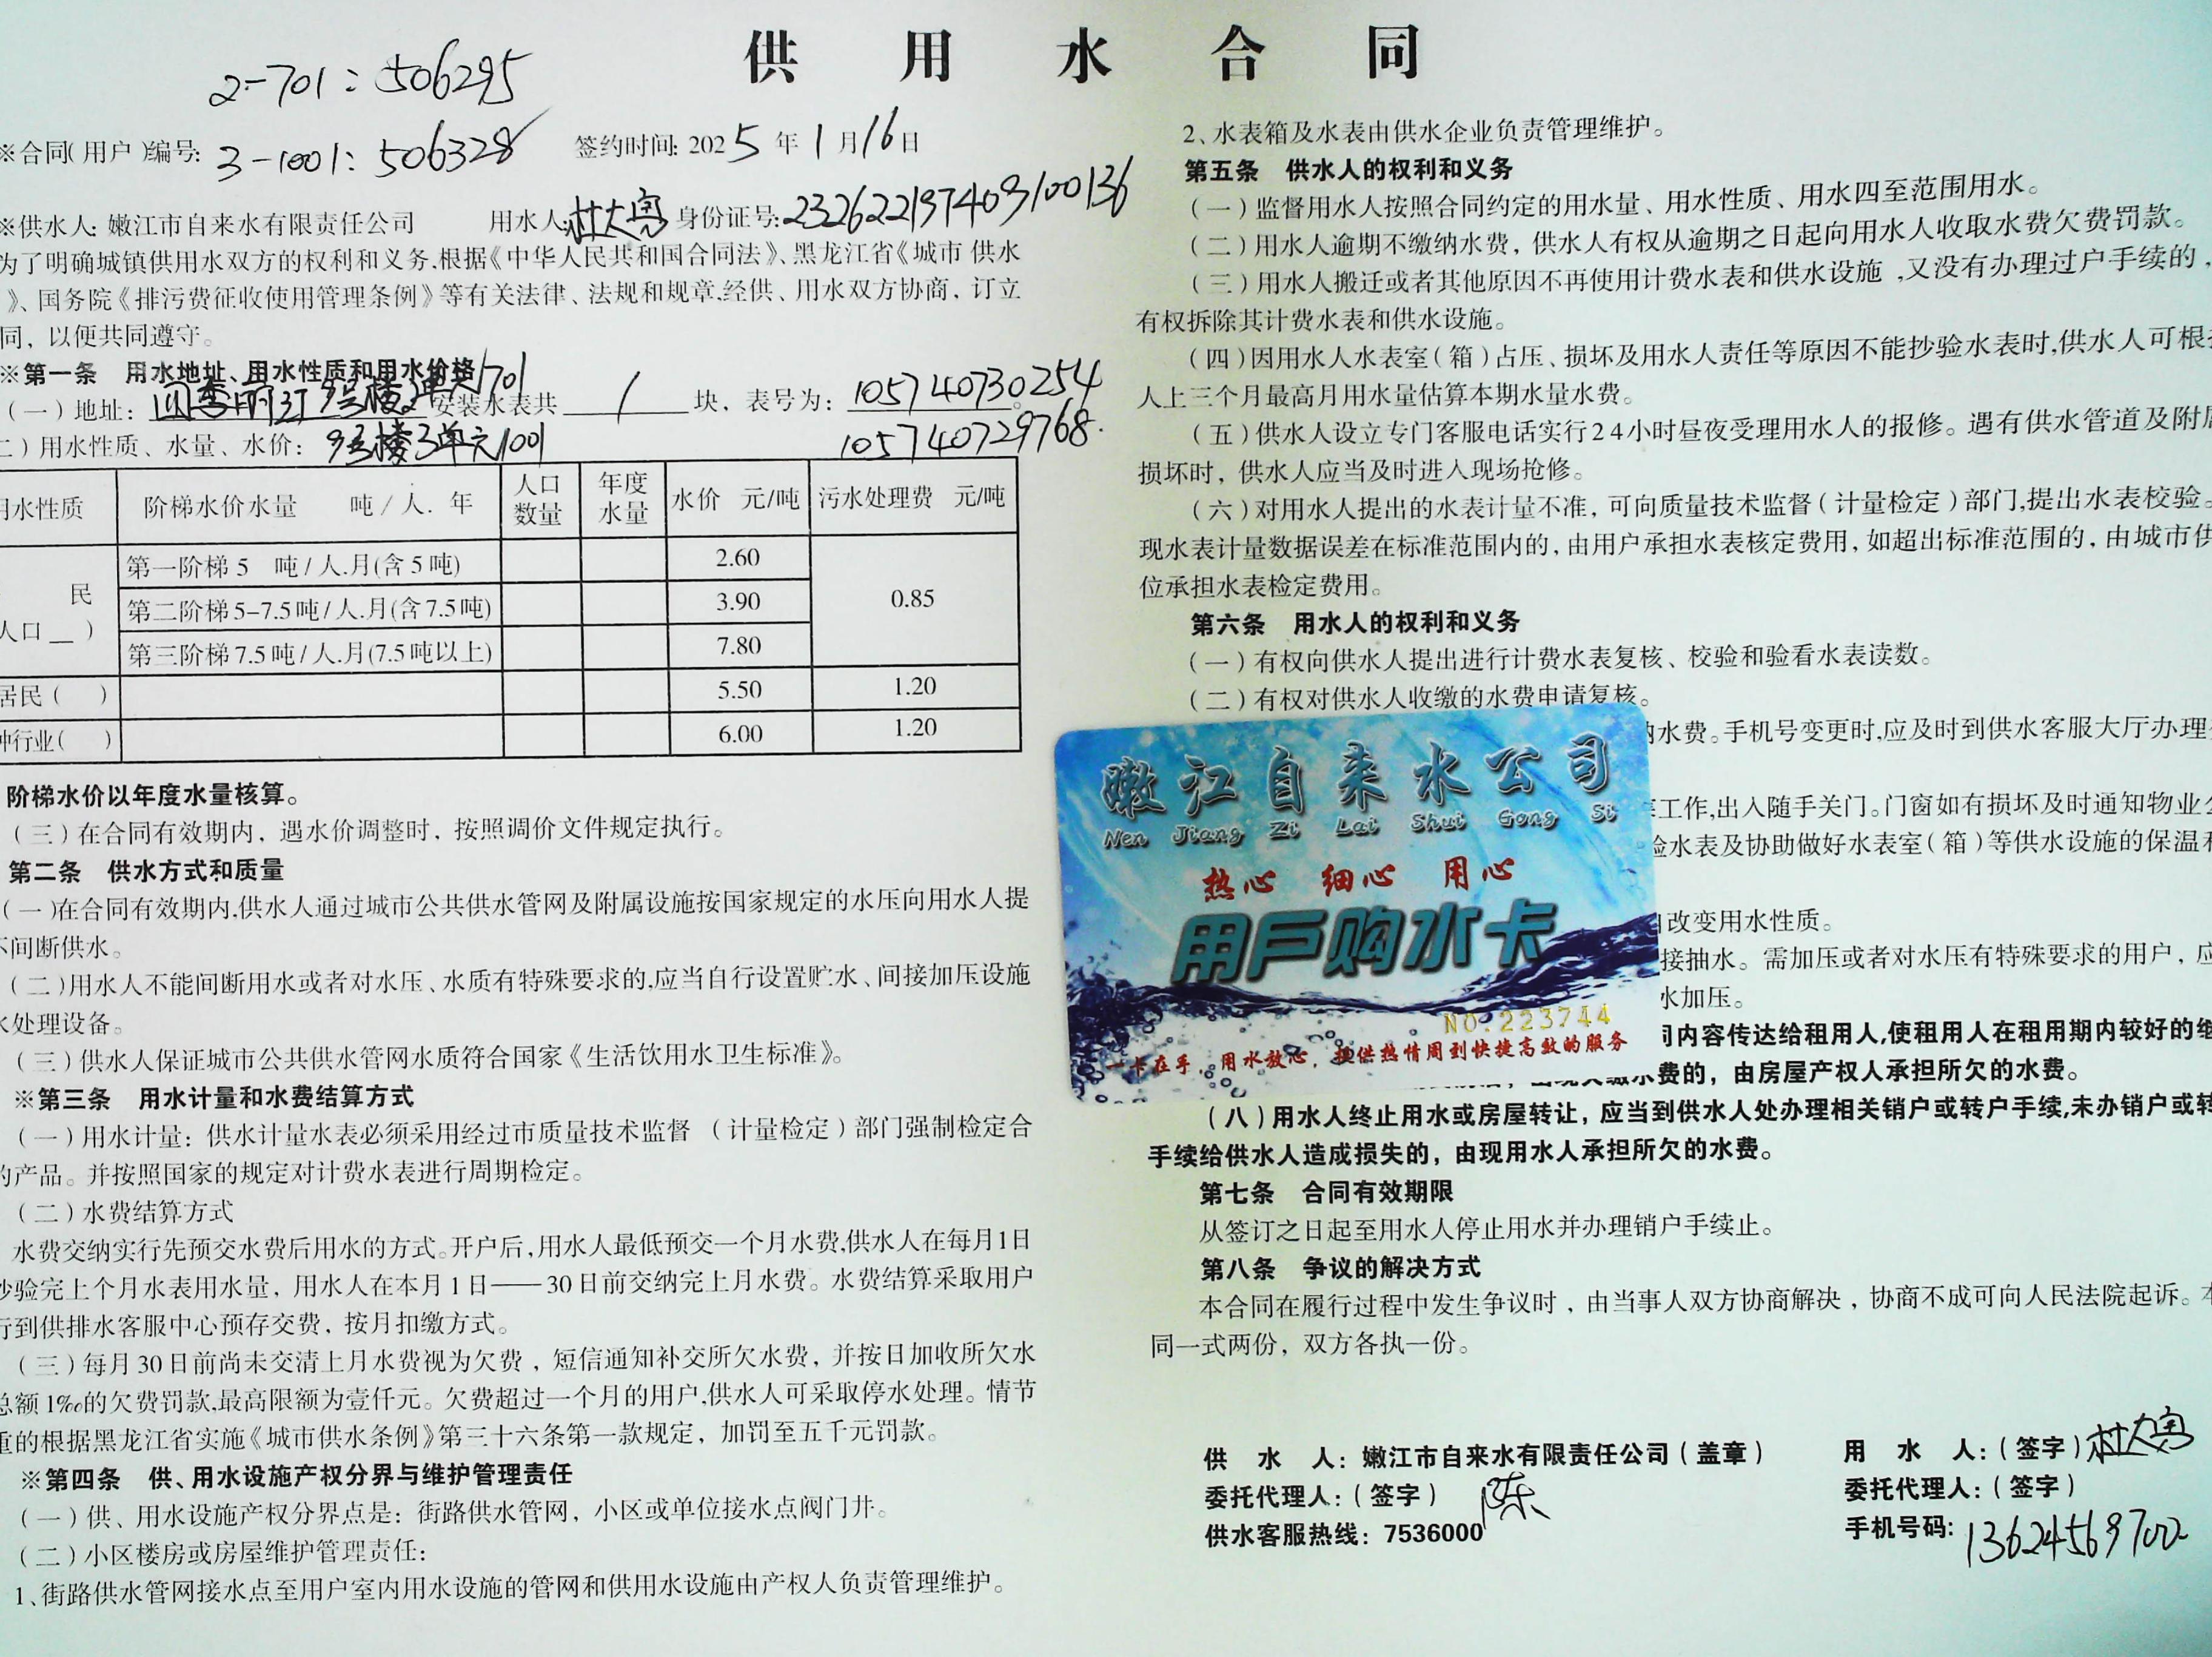 供 用 水 合 同
2-701：506295
※合同(用户)编号: 3-1001：506328 签约时间: 2025 年 1 月 16 日
※供水人: 嫩江市自来水有限责任公司 用水人: 身份证号:
为了明确城镇供用水双方的权利和义务,根据《中华人民共和国合同法》、黑龙江省《城市 供水
》、国务院《排污费征收使用管理条例》等有关法律、法规和规章,经供、用水双方协商，订立
同，以便共同遵守。
※第一条 用水地址、用水性质和用水价格
(一)地址: 9号楼2单元701 安装水表共 1 块，表号为: 105740730254
二)用水性质、水量、水价: 9号楼3单元1001 105740729768.
用水性质 阶梯水价水量 吨/人. 年 人口数量 年度水量 水价 元/吨 污水处理费 元/吨
民
人口__ )
第一阶梯 5 吨/人.月(含 5 吨) 2.60 0.85
第二阶梯 5-7.5 吨/人.月(含 7.5 吨) 3.90
第三阶梯 7.5 吨/人.月(7.5 吨以上) 7.80
居民( ) 5.50 1.20
种行业( ) 6.00 1.20
阶梯水价以年度水量核算。
(三)在合同有效期内，遇水价调整时，按照调价文件规定执行。
第二条 供水方式和质量
(一)在合同有效期内,供水人通过城市公共供水管网及附属设施按国家规定的水压向用水人提
不间断供水。
(二)用水人不能间断用水或者对水压、水质有特殊要求的,应当自行设置贮水、间接加压设施
水处理设备。
(三)供水人保证城市公共供水管网水质符合国家《生活饮用水卫生标准》。
※第三条 用水计量和水费结算方式
(一)用水计量：供水计量水表必须采用经过市质量技术监督 (计量检定)部门强制检定合
的产品。并按照国家的规定对计费水表进行周期检定。
(二)水费结算方式
水费交纳实行先预交水费后用水的方式。开户后,用水人最低预交一个月水费,供水人在每月1日
抄验完上个月水表用水量，用水人在本月 1 日——30 日前交纳完上月水费。水费结算采取用户
行到供排水客服中心预存交费，按月扣缴方式。
(三)每月 30 日前尚未交清上月水费视为欠费，短信通知补交所欠水费，并按日加收所欠水
总额 1‰的欠费罚款,最高限额为壹仟元。欠费超过一个月的用户,供水人可采取停水处理。情节
重的根据黑龙江省实施《城市供水条例》第三十六条第一款规定，加罚至五千元罚款。
※第四条 供、用水设施产权分界与维护管理责任
(一)供、用水设施产权分界点是：街路供水管网，小区或单位接水点阀门井。
(二)小区楼房或房屋维护管理责任：
1、街路供水管网接水点至用户室内用水设施的管网和供用水设施由产权人负责管理维护。
2、水表箱及水表由供水企业负责管理维护。
第五条 供水人的权利和义务
(一)监督用水人按照合同约定的用水量、用水性质、用水四至范围用水。
(二)用水人逾期不缴纳水费，供水人有权从逾期之日起向用水人收取水费欠费罚款。
(三)用水人搬迁或者其他原因不再使用计费水表和供水设施 ,又没有办理过户手续的，
有权拆除其计费水表和供水设施。
(四)因用水人水表室(箱)占压、损坏及用水人责任等原因不能抄验水表时,供水人可根
人上三个月最高月用水量估算本期水量水费。
(五)供水人设立专门客服电话实行24小时昼夜受理用水人的报修。遇有供水管道及附属
损坏时，供水人应当及时进入现场抢修。
(六)对用水人提出的水表计量不准，可向质量技术监督(计量检定)部门,提出水表校验。
现水表计量数据误差在标准范围内的，由用户承担水表核定费用，如超出标准范围的，由城市供
位承担水表检定费用。
第六条 用水人的权利和义务
(一)有权向供水人提出进行计费水表复核、校验和验看水表读数。
(二)有权对供水人收缴的水费申请复核。
水费。手机号变更时,应及时到供水客服大厅办理
工作,出入随手关门。门窗如有损坏及时通知物业
验水表及协助做好水表室(箱)等供水设施的保温
改变用水性质。
接抽水。需加压或者对水压有特殊要求的用户，应
水加压。
内容传达给租用人,使租用人在租用期内较好的
费的，由房屋产权人承担所欠的水费。
(八)用水人终止用水或房屋转让，应当到供水人处办理相关销户或转户手续,未办销户或转
手续给供水人造成损失的，由现用水人承担所欠的水费。
第七条 合同有效期限
从签订之日起至用水人停止用水并办理销户手续止。
第八条 争议的解决方式
本合同在履行过程中发生争议时，由当事人双方协商解决，协商不成可向人民法院起诉。本
同一式两份，双方各执一份。
供 水 人：嫩江市自来水有限责任公司(盖章)
委托代理人：(签字) 陈
供水客服热线：7536000
用 水 人：(签字)
委托代理人：(签字)
手机号码: 13624569702
嫩江自来水公司
Nen Jiang Zi Lai Shui Gong Si
热心 细心 用心
用户购水卡
NO.223744
一卡在手，用水放心，提供热情周到快捷高效的服务